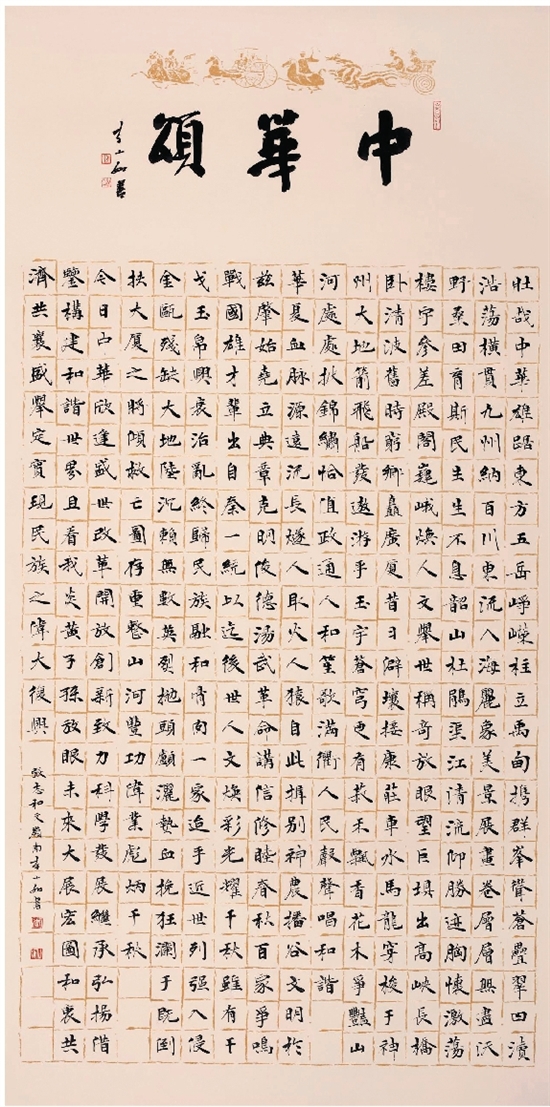 中華頌
壮哉中華雄踞東方五岳崢嶸柱立禹甸攜群峯聳蒼疊翠四瀆
浩荡橫貫九州納百川東流入海麗象美景展畫卷層層無盡沃
野桑田育斯民生生不息韶山杜鵑江清流仰勝迹胸懷激荡
樓宇參差殿閣巍峨煥人文舉世稱奇放眼望巨壩出高峽長橋
卧清波舊時窮鄉矗廣厦昔日僻壤接康莊車水馬龍穿梭于神
州大地箭飛船發遨游乎玉宇蒼穹更有菽禾飄香花木爭豔山
河處處披錦繡恰值政通人和笙歌滿衢人民聲聲唱和諧
華夏血脉源遠流長燧人取火人猿自此揖别神農播谷文明於
兹肇始堯立典章克明俊德湯武革命講信修睦春秋百家爭鳴
戰國雄才輩出自秦一統以迄後世人文煥彩光耀千秋雖有干
戈玉帛興衰治亂終歸民族融和情同一家迨乎近世列强入侵
金甌殘缺大地陸沉賴無數英烈抛頭顱灑熱血挽狂瀾于既倒
扶大厦之將傾救亡圖存重整山河豐功偉業彪炳千秋
今日中華欣逢盛世改革開放創新致力科學發展繼承弘揚偕
鑒構建和諧世界且看我炎黄子孫放眼未來大展宏圖和衷共
濟共襄盛舉定實現民族之偉大復興